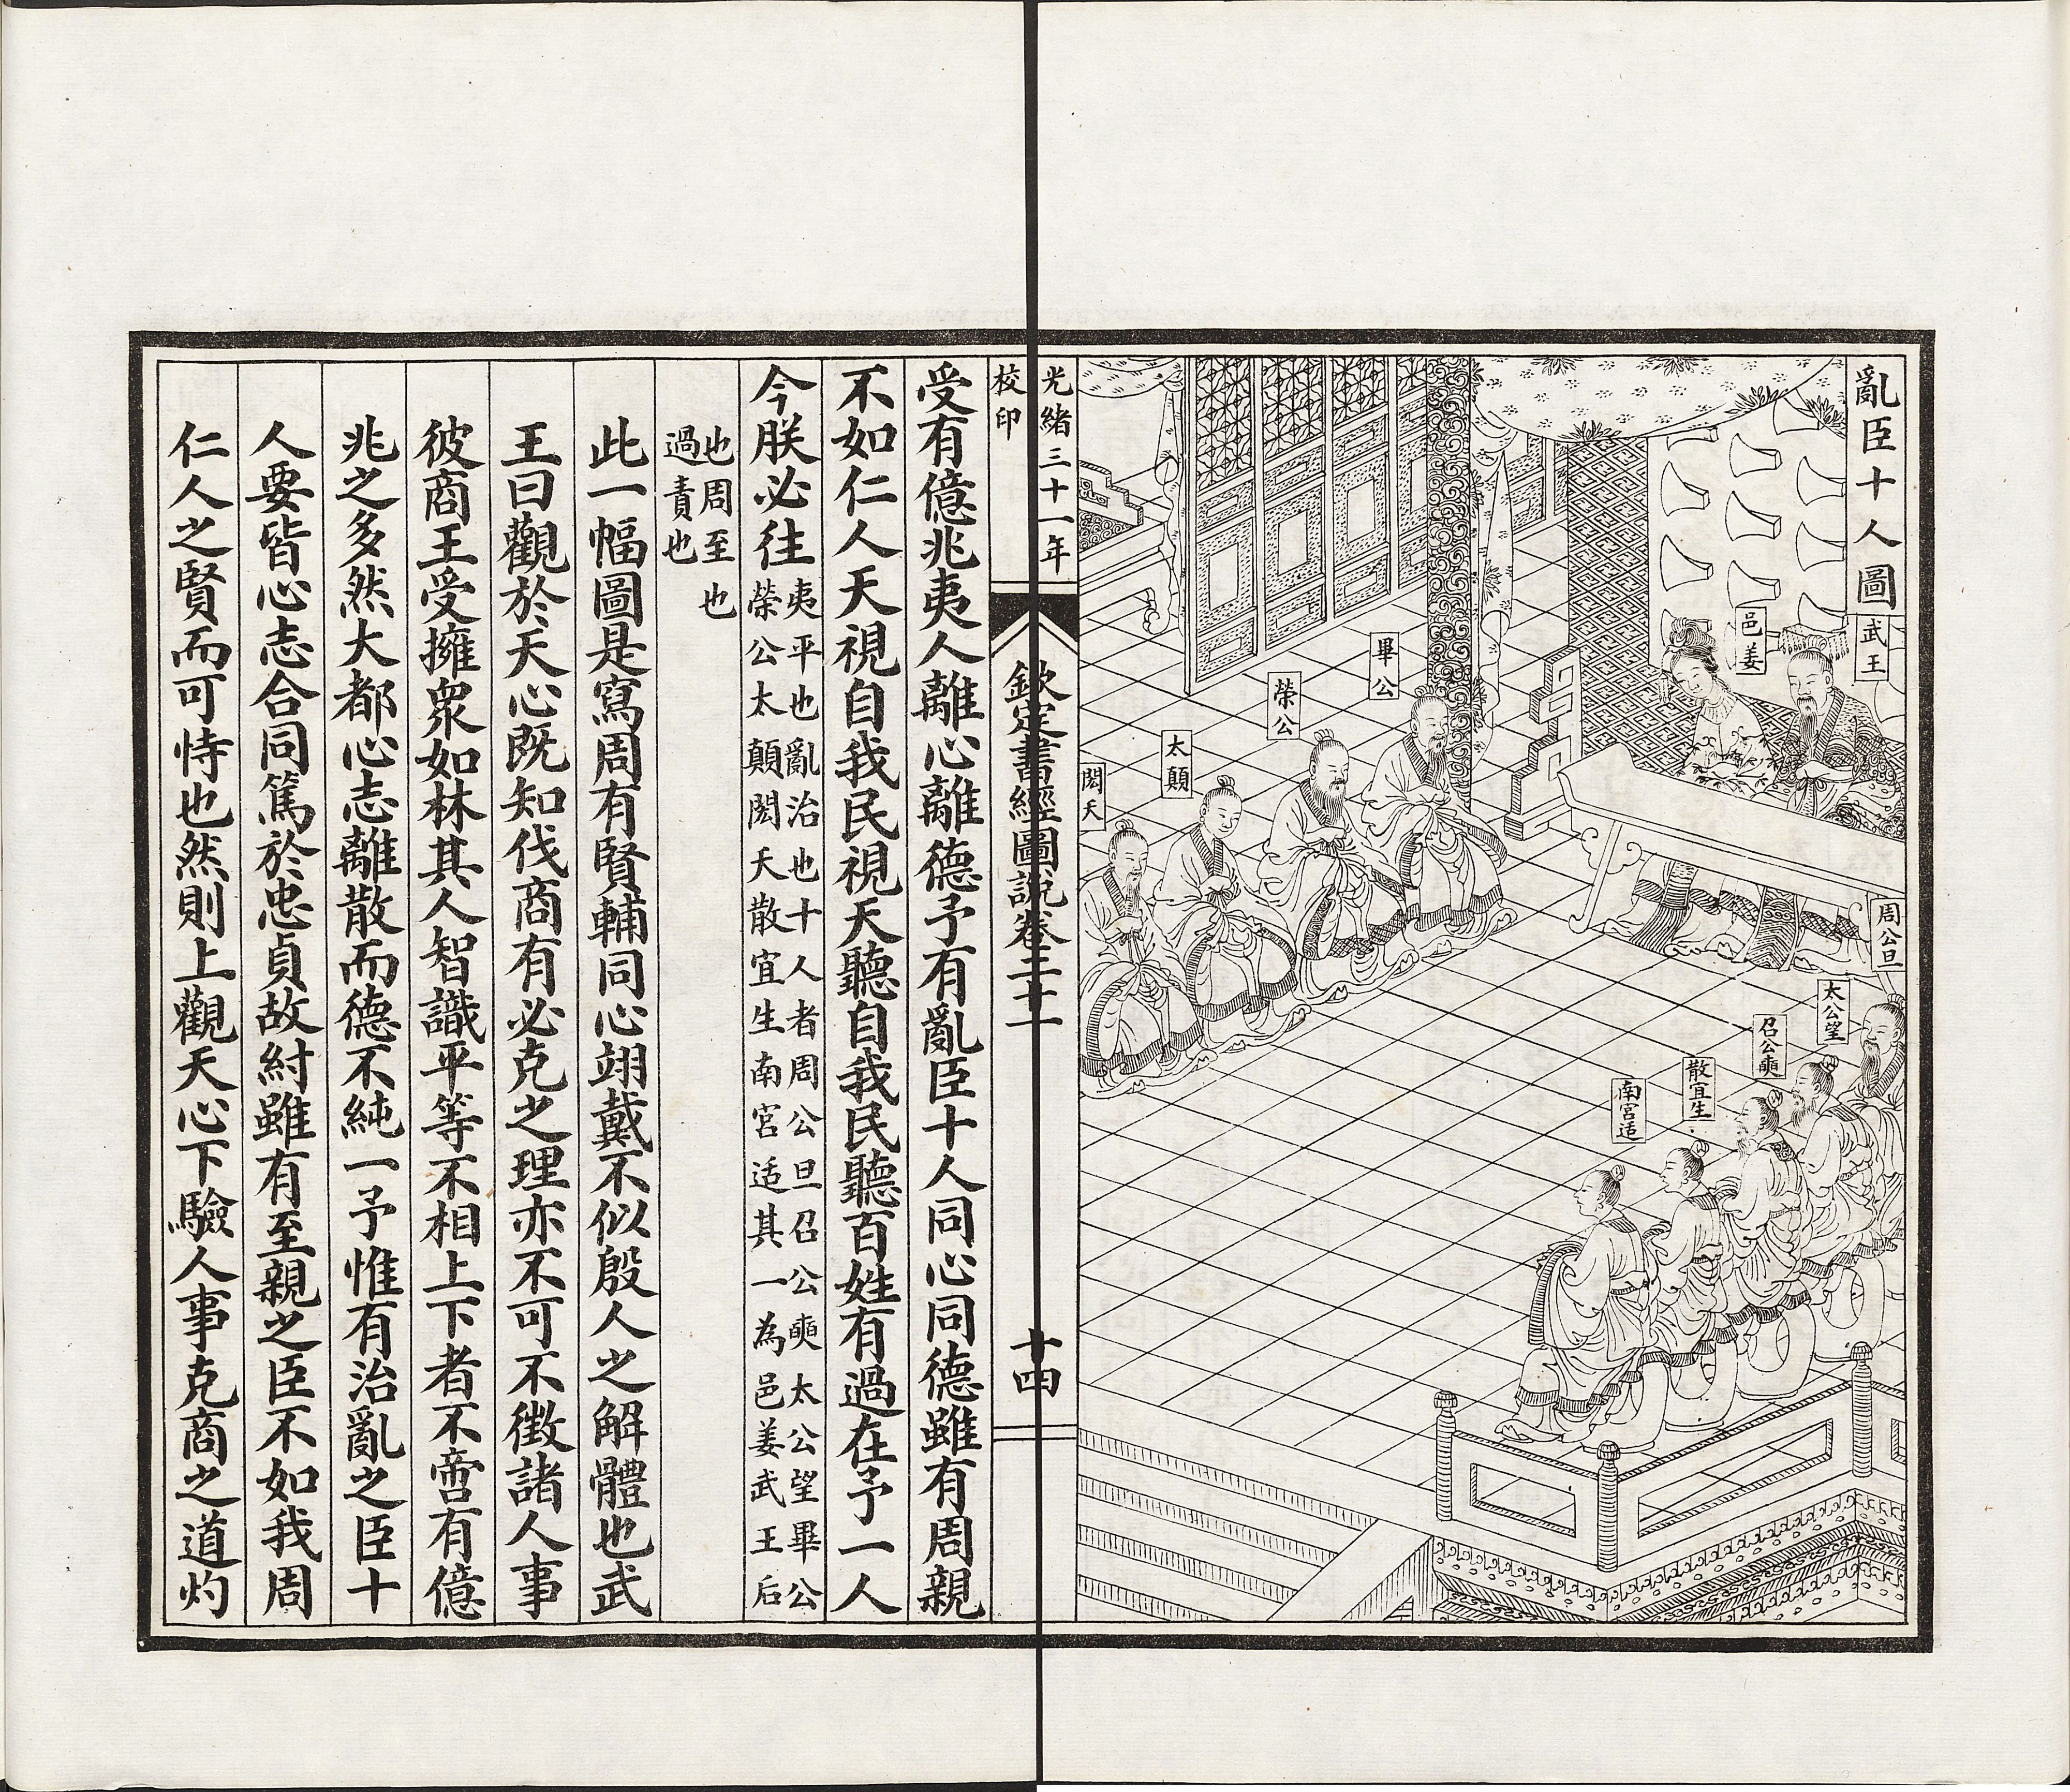 亂臣十人圖
武王
邑姜
周公旦
太公望
召公奭
散宜生
南宮适
畢公
榮公
太顛
閎夭
光緒三十一年
校印
欽定書經圖說卷二十一
十四
受有億兆夷人離心離德予有亂臣十人同心同德雖有周親
不如仁人天視自我民視天聽自我民聽百姓有過在予一人
今朕必往
夷平也亂治也十人者周公旦召公奭太公望畢公
榮公太顛閎夭散宜生南宮适其一為邑姜武王后
也周至也
過責也
此一幅圖是寫周有賢輔同心翊戴不似殷人之解體也武
王曰觀於天心既知伐商有必克之理亦不可不徵諸人事
彼商王受擁眾如林其人智識平等不相上下者不啻有億
兆之多然大都心志離散而德不純一予惟有治亂之臣十
人要皆心志合同篤於忠貞故紂雖有至親之臣不如我周
仁人之賢而可恃也然則上觀天心下驗人事克商之道灼